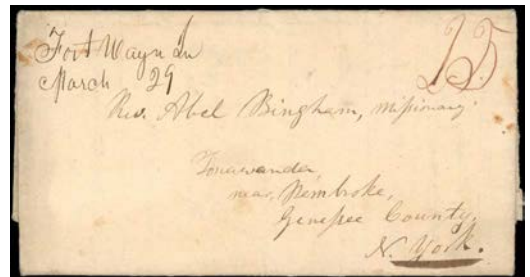 Fort Wayn In
March 29
25
Rev. Abel Bingham, Missionary
Tonawanda,
near, Pembroke,
Genesee County,
N. York.